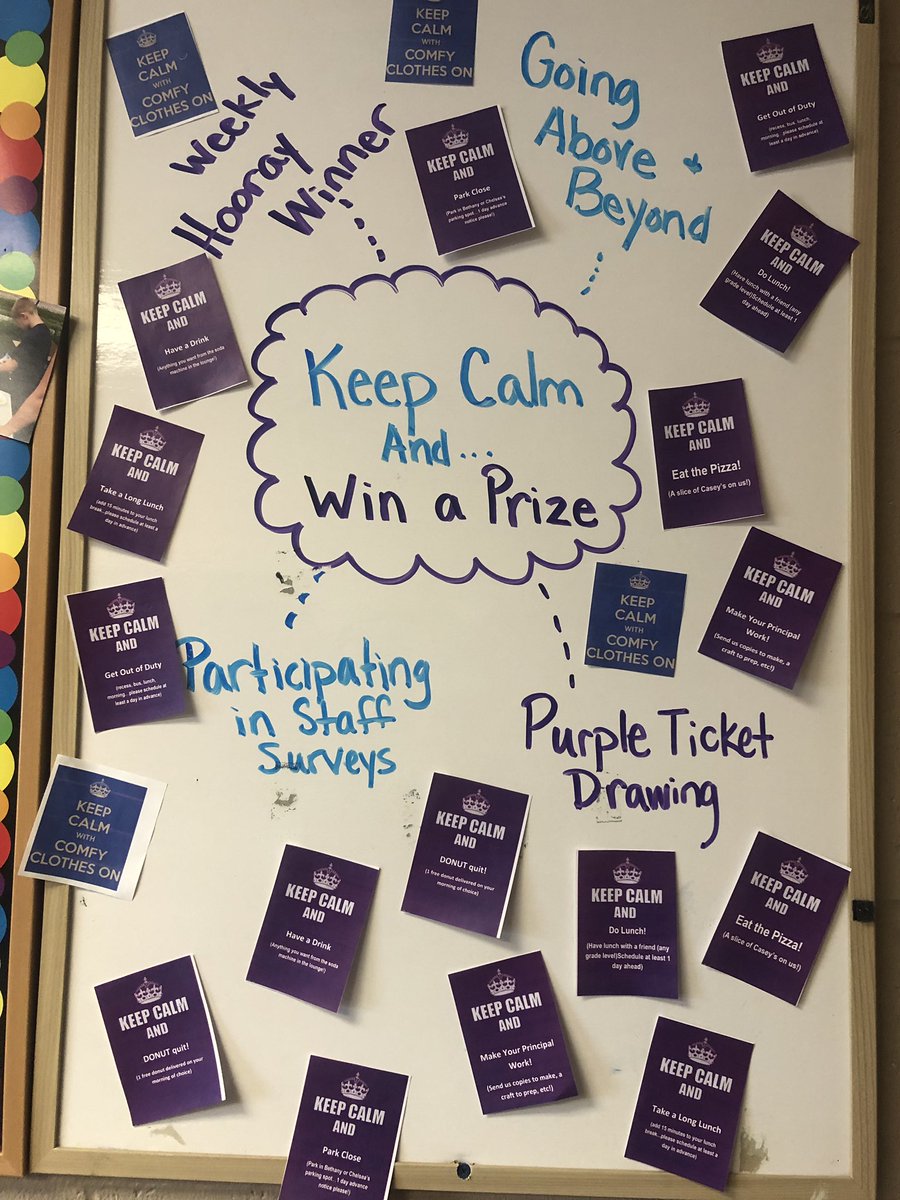 KEEP
CALM
WITH
COMFY
CLOTHES ON
KEEP
CALM
WITH
COMFY
CLOTHES ON
Weekly
Hooray
Winner
KEEP CALM
AND
Park Close
(Park in Bethany or Chelsea's
parking spot...1 day advance
notice please!)
Going
Above +
Beyond
KEEP CALM
AND
Get Out of Duty
(recess, bus, lunch,
morning...please schedule at
least a day in advance)
KEEP CALM
AND
Do Lunch!
(Have lunch with a friend (any
grade level)Schedule at least 1
day ahead)
KEEP CALM
AND
Have a Drink
(Anything you want from the soda
machine in the lounge!)
Keep Calm
And...
Win a Prize
KEEP CALM
AND
Eat the Pizza!
(A slice of Casey's on us!)
KEEP CALM
AND
Take a Long Lunch
(add 15 minutes to your lunch
break...please schedule at least a
day in advance)
KEEP CALM
AND
Get Out of Duty
(recess, bus, lunch,
morning...please schedule at
least a day in advance)
Participating
in Staff
Surveys
KEEP
CALM
WITH
COMFY
CLOTHES ON
KEEP CALM
AND
Make Your Principal
Work!
(Send us copies to make, a
craft to prep, etc!)
Purple Ticket
Drawing
KEEP
CALM
WITH
COMFY
CLOTHES ON
KEEP CALM
AND
DONUT quit!
(1 free donut delivered on your
morning of choice)
KEEP CALM
AND
Have a Drink
(Anything you want from the soda
machine in the lounge!)
KEEP CALM
AND
Do Lunch!
(Have lunch with a friend (any
grade level)Schedule at least 1
day ahead)
KEEP CALM
AND
Eat the Pizza!
(A slice of Casey's on us!)
KEEP CALM
AND
DONUT quit!
(1 free donut delivered on your
morning of choice)
KEEP CALM
AND
Make Your Principal
Work!
(Send us copies to make, a
craft to prep, etc!)
KEEP CALM
AND
Park Close
(Park in Bethany or Chelsea's
parking spot...1 day advance
notice please!)
KEEP CALM
AND
Take a Long Lunch
(add 15 minutes to your lunch
break...please schedule at least a
day in advance)